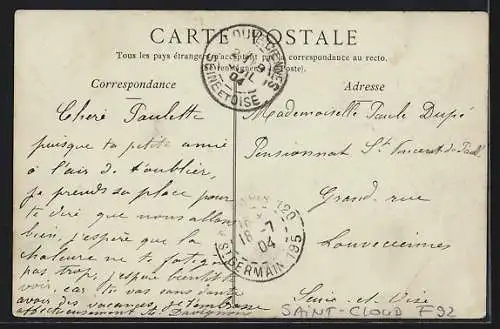 CARTE POSTALE
Tous les pays étrangers n'acceptent pas la correspondance au recto.
(Renseignements à la Poste).
Correspondance
Adresse
LOUVECIENNES
04
SEINE ET OISE
Chère Paulette
puisque ta petite amie
à l'air de t'oublier,
je prends sa place pour
te dire que nous allons
bien, j'espère que la
chaleur ne te fatigue
pas trop, j'espère bientôt
voir, car tu vas sans doute
avoir des vacances, je t'embrasse
affectueusement
Mademoiselle Paule Dupé
Pensionnat St Vincent de Paul
Grand rue
Louveciennes
Seine et Oise
120
16 -7
04
ST GERMAIN 195
SAINT-CLOUD F92